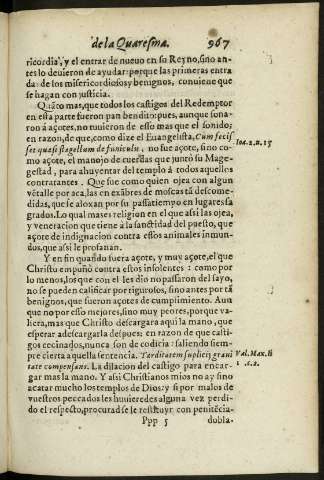 de la Quaresma. 967
ricordia, y el entrar de nueuo en su Reyno, sino an-
tes lo deuieron de ayudar: porque las primeras entra
da de los misericordiosos y benignos, conuiene que
se hagan con justicia.
Quãto mas, que todos los castigos del Redemptor
en esta parte fueron pan bendito: pues, aunque sona-
ron à açotes, no tuuieron de esso mas que el sonido;
en razon, de que, como dize el Euangelista, Cum fecis
set quasi flagellum de funiculu, no fue açote, sino co-
mo açote, el manojo de cuerdas que juntó su Mage-
gestad, para ahuyentar del templo á todos aquellos
contratantes. Que fue como quien ojea con algun
vẽtalle por aca, las en exãbres de moscas tã descome-
didas, que se aloxan por su passatiempo en lugares sa
grados. Lo qual mas es religion en el que assi las ojea,
y veneracion que tiene à la sanctidad del puesto, que
açote de indignacion contra estos animales inmun-
dos, que assi le profanan.
Y en fin quando fuera açote, y muy açote, el que
Christo empuñó contra estos insolentes: como por
lo menos, los que con el les dio no passaron del sayo,
no se pueden calificar por rigurosos, sino antes por tã
benignos, que fueron açotes de cumplimiento. Aun
que no por esso mejores, sino muy peores, porque va-
liera, mas que Christo descargara aqui la mano, que
esperar a descargarla despues: en razon de que casti-
gos cecinados, nunca son de codicia: saliendo siem-
pre cierta aquella sentencia. Tarditatem suplicij graui
tate compensans. La dilacion del castigo para encar-
gar mas la mano. Y assi Christianos mios no ay sino
acatar mucho los templos de Dios: y si por malos de
vuestros peccados les huuieredes alguna vez perdi-
do el respecto, procurad se le restituyr con penitẽcia
Ppp 5 dobla-
Ioa. 2. n. 15
Val. Max. li